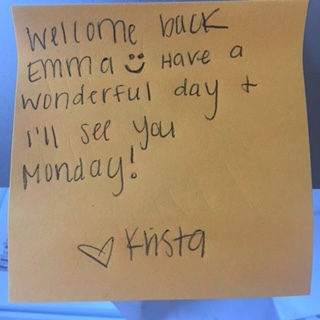 Welcome back
Emma Have a
wonderful day +
I'll see you
Monday!
Krista